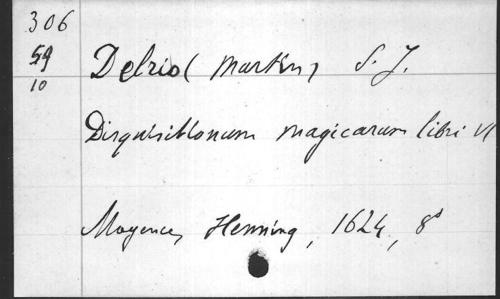 306
59 Delrio (Martin) S. J.
10
Disquisitionum magicarum libri VI
Mayence, Henning, 1624, 8°